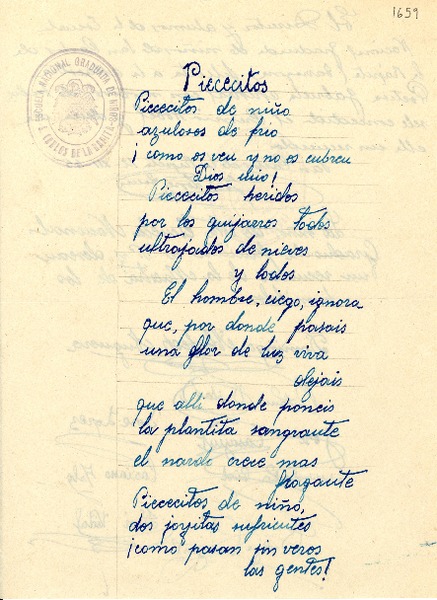 1659
ESCUELA NACIONAL GRADUADA DE NIÑOS
S. CARLOS DE LA RAPITA
Piececitos
Piececitos de niño
azulosos de frio
¡como os veu y no es cubreu
Dios mio!
Piececitos heridos
por los guijarros todos
ultrajados de nieves
y lodos
El hombre, ciego, ignora
que, por donde pasais
una flor de luz viva
dejais
que alli donde poneis
la plantita sangrante
el narde crece mas
fragante
Piececitos de niño,
dos joyitas sufrientes
¡como pasan sin veros
las gentes!